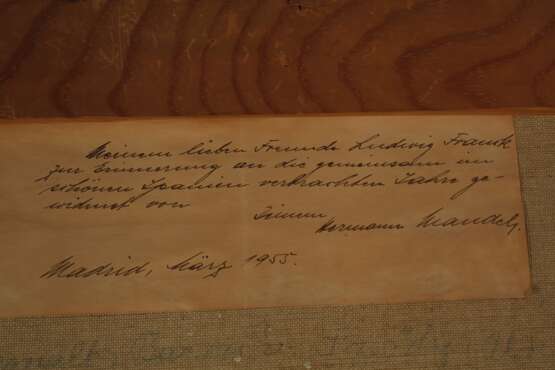 Meinem lieben Freunde Ludwig Franck
zur Erinnerung an die gemeinsam im
schönen Spanien verbrachten Jahre ge-
widmet von
Seinem
Hermann Mandel.
Madrid, März 1955.